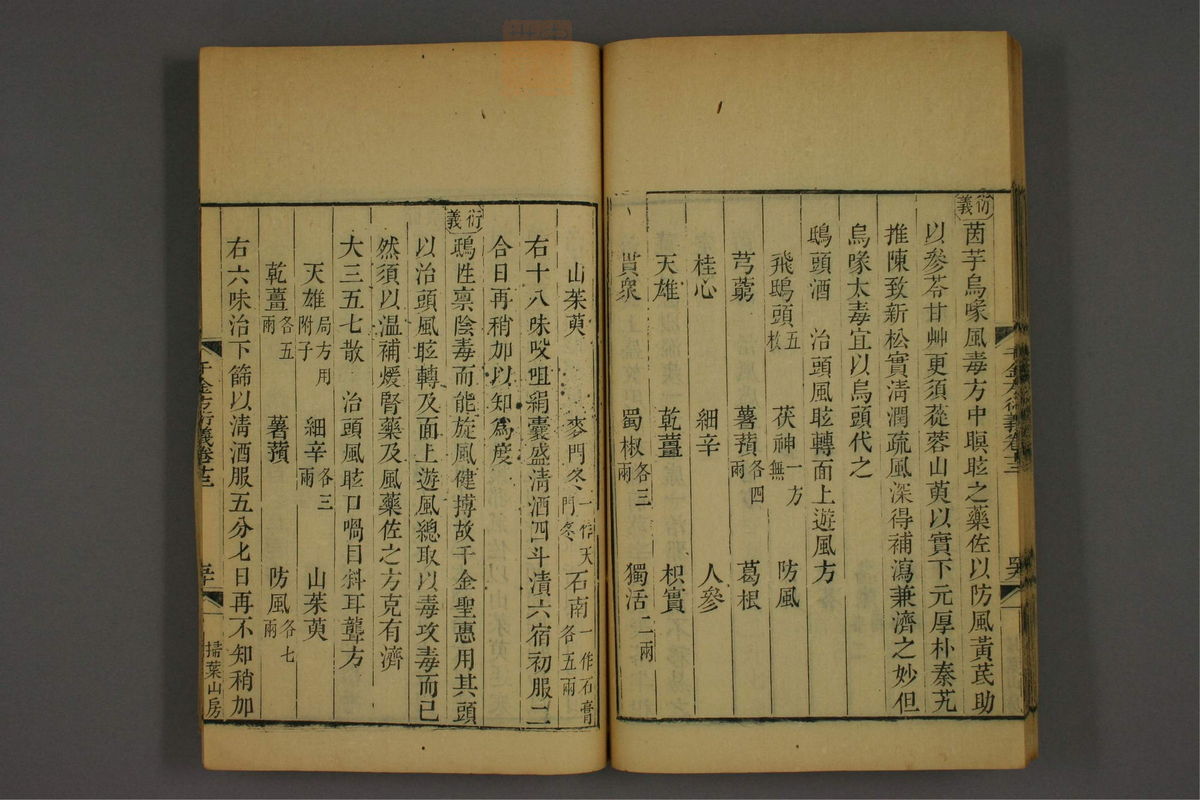 衍義
茵芋烏喙風毒方中瞑眩之藥佐以防風黃芪助
以參苓甘艸更須蓯蓉山萸以實下元厚朴秦艽
推陳致新松實淸潤疏風深得補瀉兼濟之妙但
烏喙太毒宜以烏頭代之
鴟頭酒 治頭風眩轉面上遊風方
飛鴟頭五枚 茯神一方無 防風
芎藭 薯蕷各四兩 葛根
桂心 細辛 人參
天雄 乾薑 枳實
貫衆 蜀椒各三兩 獨活二兩
千金方衍義卷十三
山茱萸 麥門冬一作天門冬 石南一作石膏各五兩
右十八味㕮咀絹囊盛淸酒四斗漬六宿初服二
合日再稍加以知爲度
衍義
鴟性禀陰毒而能旋風健搏故千金聖惠用其頭
以治頭風眩轉及面上遊風總取以毒攻毒而已
然須以溫補煖腎藥及風藥佐之方克有濟
大三五七散 治頭風眩口喎目斜耳聾方
天雄局方用附子 細辛各三兩 山茱萸
乾薑各五兩 薯蕷 防風各七兩
右六味治下篩以淸酒服五分七日再不知稍加
千金方衍義卷十三
掃葉山房